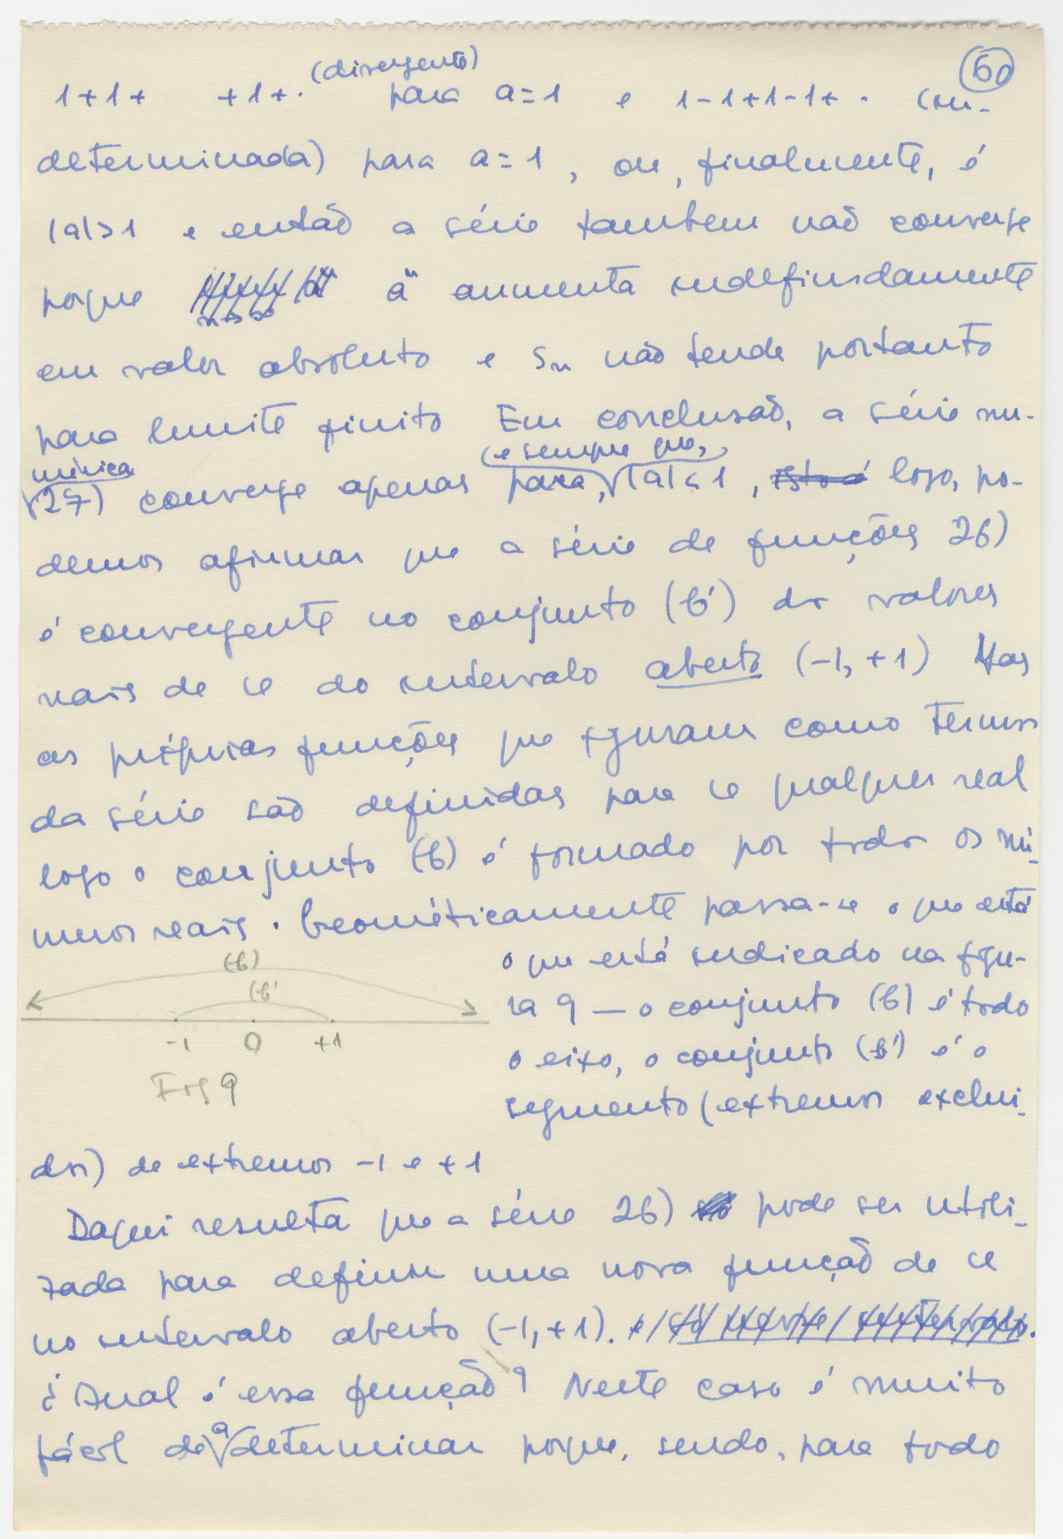 60
(divergente)
1+1+ +1+. para a=1 e 1-1+1-1+ . (in-
determinada) para a=1, ou, finalmente, é
|a|>1 e então a série tambem não converge
porque aⁿ aumenta indefinidamente
em valor absoluto e Sn não tende portanto
para limite finito Em conclusão, a série nu-
mérica (e sempre que,
27) converge apenas para, |a|<1, isto é logo, po-
demos afirmar que a série de funções 26)
é convergente no conjunto (b') dos valores
reais de x do intervalo aberto (-1,+1) Mas
as próprias funções que figuram como termos
da série são definidas para x qualquer real
logo o conjunto (b) é formado por todos os nú-
meros reais. Geométricamente passa-se o que está
o que está indicado na figu-
ra 9 — o conjunto (b) é todo
o eixo, o conjunto (b') é o
segmento (extremos exclui-
(b)
(b'
-1 0 +1
Fig 9
dos) de extremos -1 e +1
Daqui resulta que a série 26) pode ser utili-
zada para definir uma nova função de x
no intervalo aberto (-1,+1).
¿ Qual é essa função? Neste caso é muito
fácil de a determinar porque, sendo, para todo